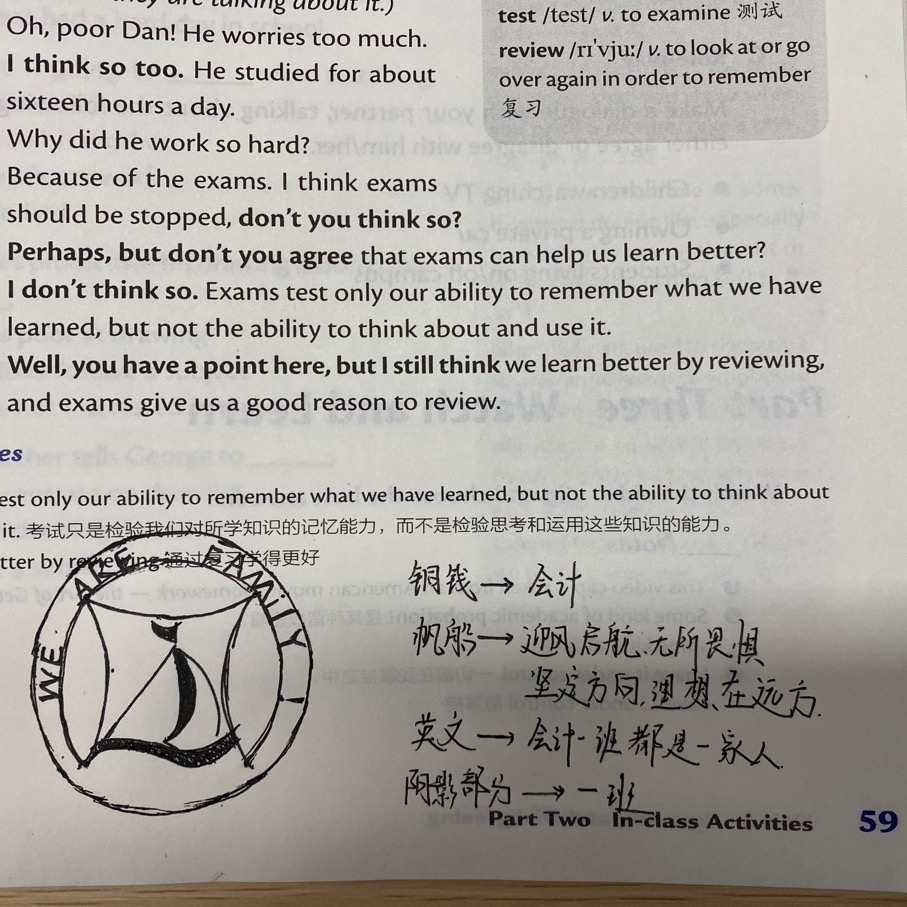 they are talking about it.)
Oh, poor Dan! He worries too much.
I think so too. He studied for about
sixteen hours a day.
Why did he work so hard?
Because of the exams. I think exams
should be stopped, don't you think so?
Perhaps, but don't you agree that exams can help us learn better?
I don't think so. Exams test only our ability to remember what we have
learned, but not the ability to think about and use it.
Well, you have a point here, but I still think we learn better by reviewing,
and exams give us a good reason to review.
test /test/ v. to examine 测试
review /rɪˈvjuː/ v. to look at or go
over again in order to remember
复习
es
est only our ability to remember what we have learned, but not the ability to think about
it. 考试只是检验我们对所学知识的记忆能力，而不是检验思考和运用这些知识的能力。
tter by reviewing 通过复习学得更好
WE ARE FAMILY 1
铜钱→会计
帆船→迎风启航,无所畏惧
坚定方向,迪想在远方.
英文→会计一班都是一家人
阴影部分→一班
Part Two In-class Activities 59